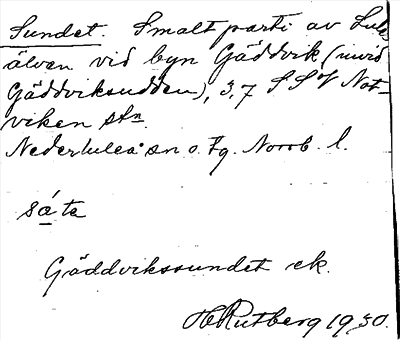 Sundet. Smalt parti av Lule
älven vid byn Gäddvik (invid
Gäddviksudden), 3,7 SSV Not-
viken stn.
Nederluleå sn o. tg. Norrb. l.
såta
Gäddvikssundet ek.
H Rutberg 1930.